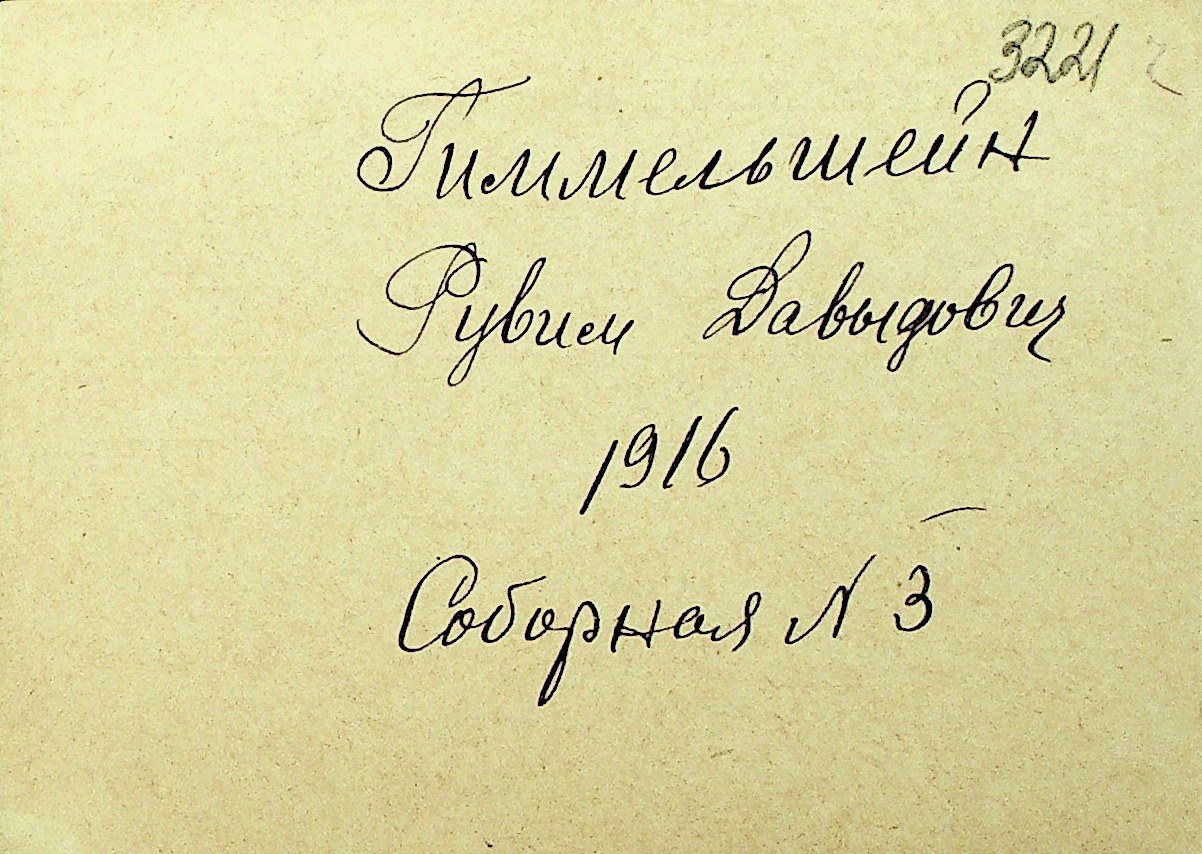 3221
Гиммельшейн
Рувим Давыдович
1916
Соборная N 3